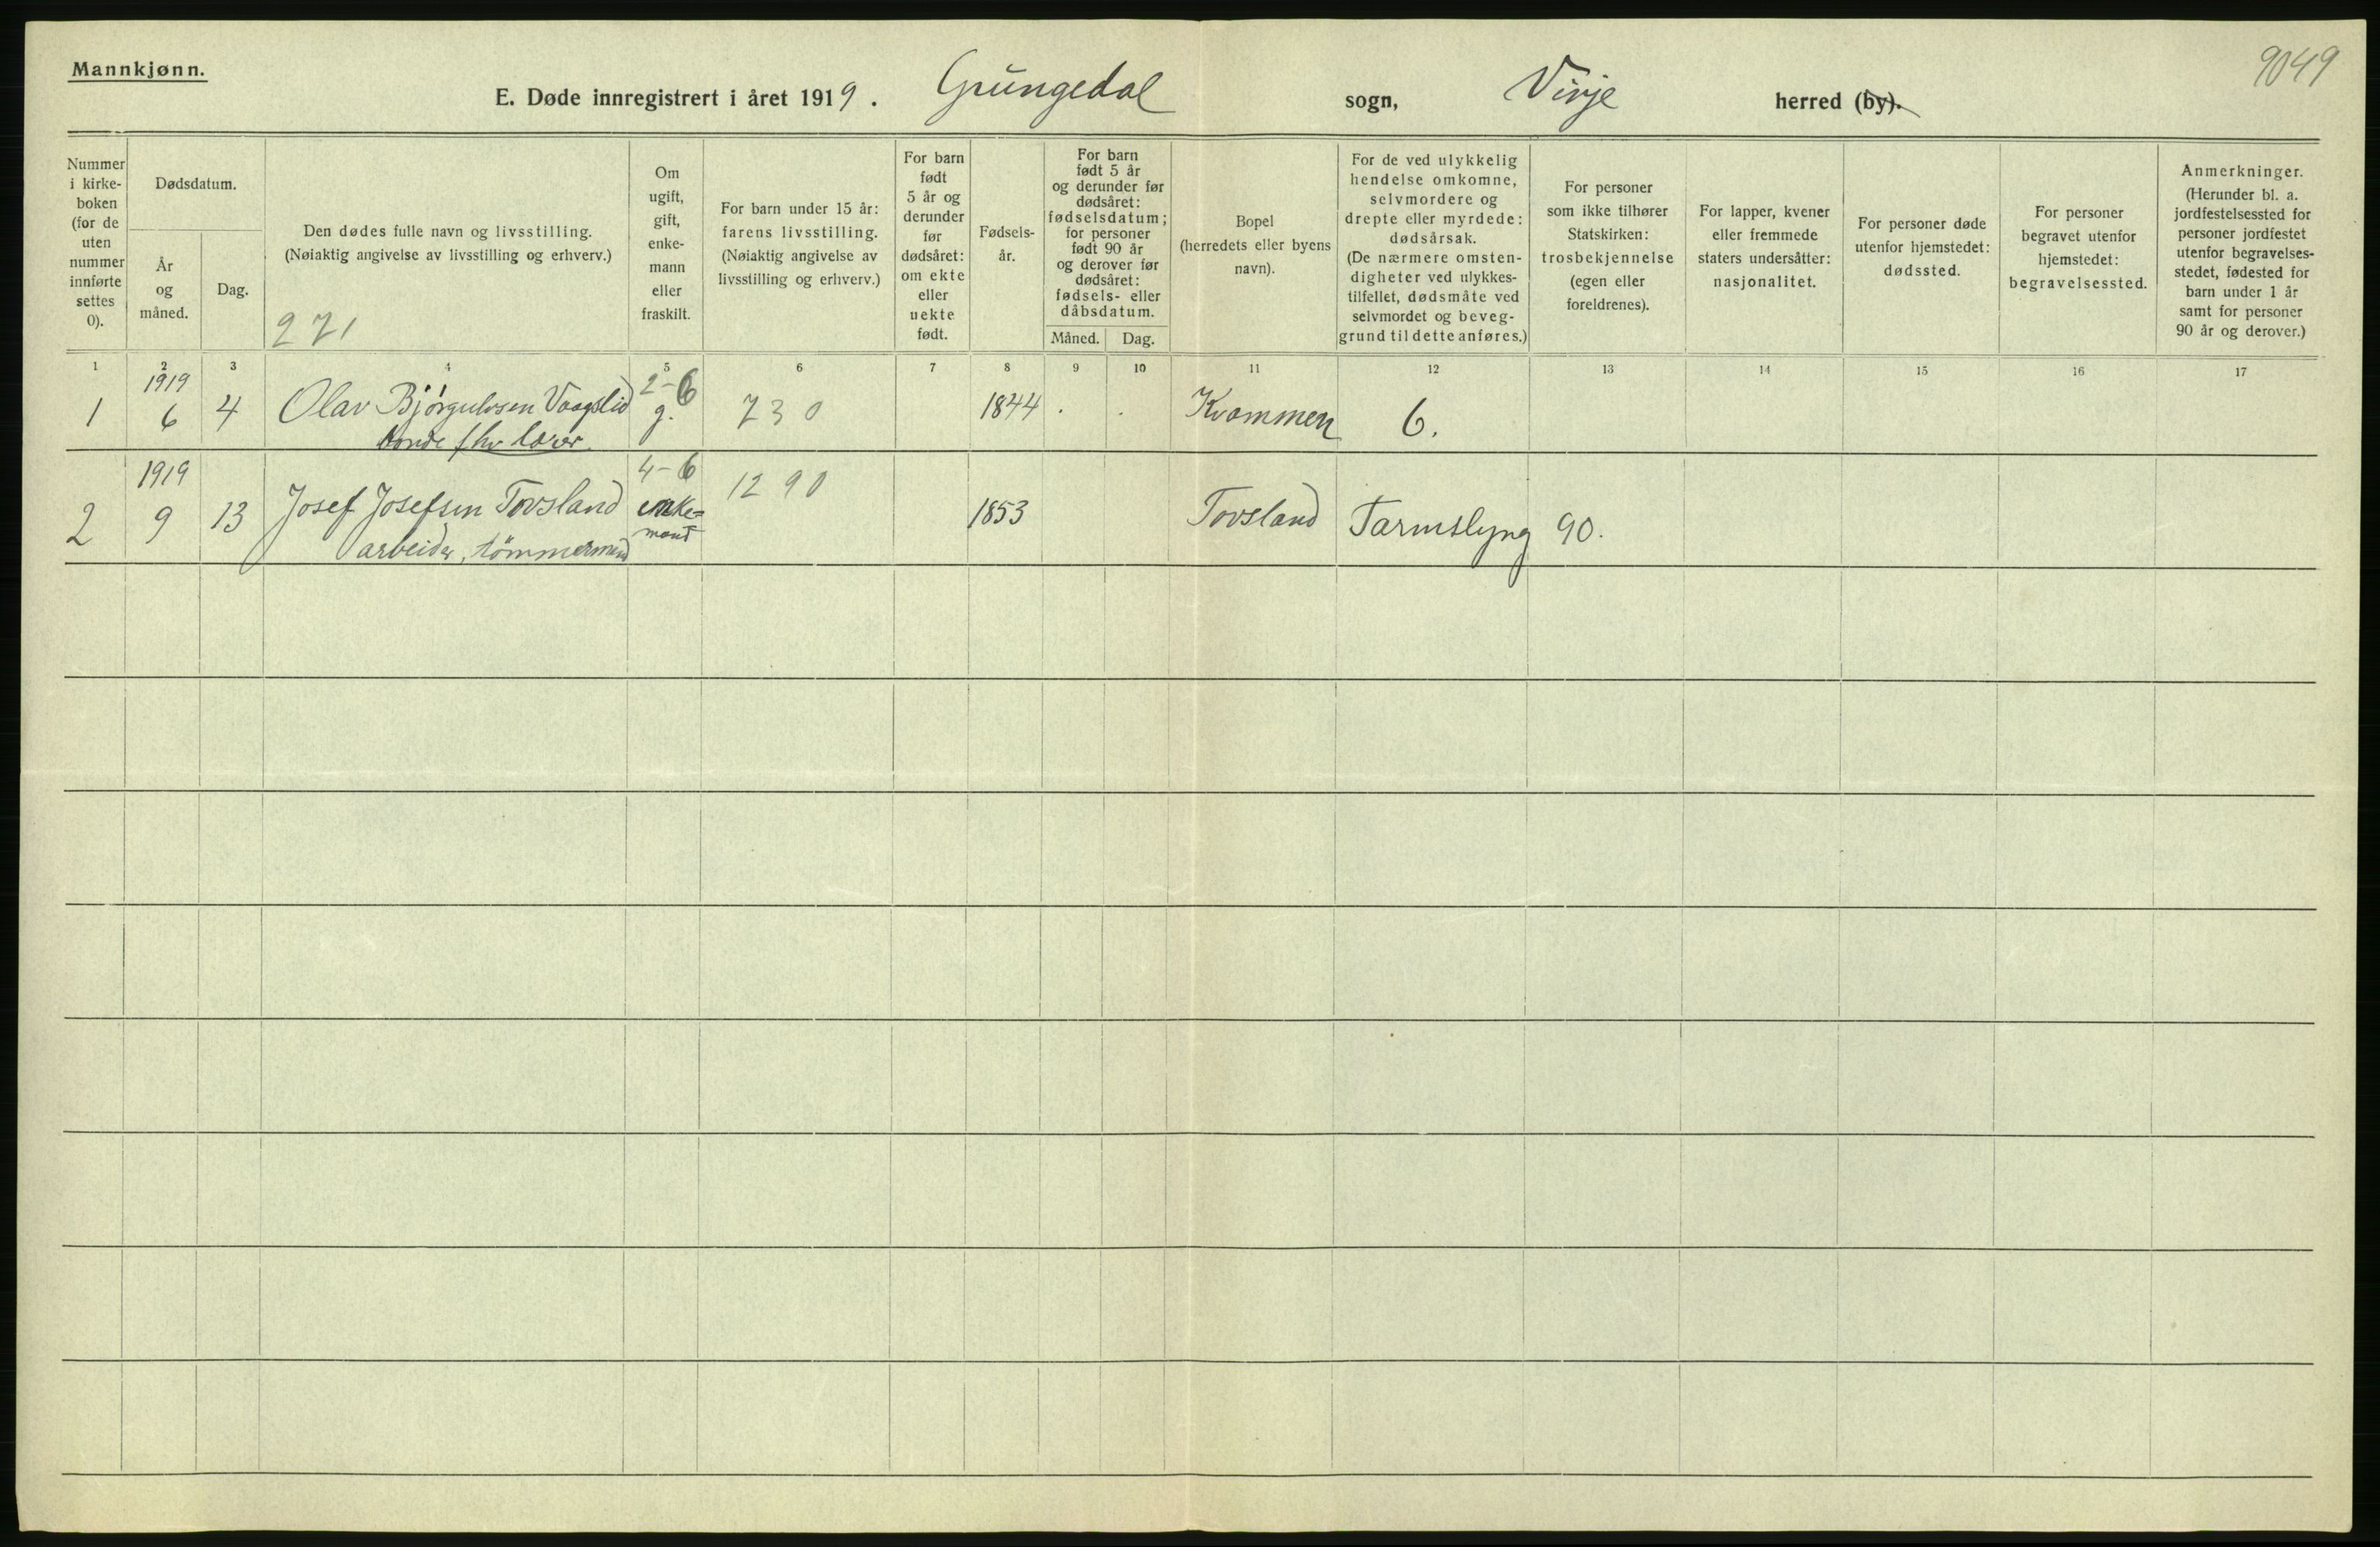 Mannkjønn.
9049
E. Døde innregistrert i året 1919. Grungedal sogn, Vinje herred (by).
Nummer
i kirke-
boken
(for de
uten
nummer
innførte
settes
0).
Dødsdatum.
År
og
måned.
Dag.
Den dødes fulle navn og livsstilling.
(Nøiaktig angivelse av livsstilling og erhverv.)
271
Om
ugift,
gift,
enke-
mann
eller
fraskilt.
For barn under 15 år:
farens livsstilling.
(Nøiaktig angivelse av
livsstilling og erhverv.)
For barn
født
5 år og
derunder
før
dødsåret:
om ekte
eller
uekte
født.
Fødsels-
år.
For barn
født 5 år
og derunder før
dødsåret:
fødselsdatum;
for personer
født 90 år
og derover før
dødsåret:
fødsels- eller
dåbsdatum.
Måned. Dag.
Bopel
(herredets eller byens
navn).
For de ved ulykkelig
hendelse omkomne,
selvmordere og
drepte eller myrdede:
dødsårsak.
(De nærmere omsten-
digheter ved ulykkes-
tilfellet, dødsmåte ved
selvmordet og beveg-
grund til dette anføres.)
For personer
som ikke tilhører
Statskirken:
trosbekjennelse
(egen eller
foreldrenes).
For lapper, kvener
eller fremmede
staters undersåtter:
nasjonalitet.
For personer døde
utenfor hjemstedet:
dødssted.
For personer
begravet utenfor
hjemstedet:
begravelsessted.
Anmerkninger.
(Herunder bl. a.
jordfestelsessted for
personer jordfestet
utenfor begravelses-
stedet, fødested for
barn under 1 år
samt for personer
90 år og derover.)
1 2 3 4 5 6 7 8 9 10 11 12 13 14 15 16 17
1919 2-6
1 6 4 Olav Bjørgulvsen Vaagslid g. 730 1844 . . Kvammen 6.
bonde fhv lærer.
1919 4-6
2 9 13 Josef Josefsen Tovsland enke= 1290 1853 Tovsland Tarmslyng 90.
arbeider, tömmermand mand